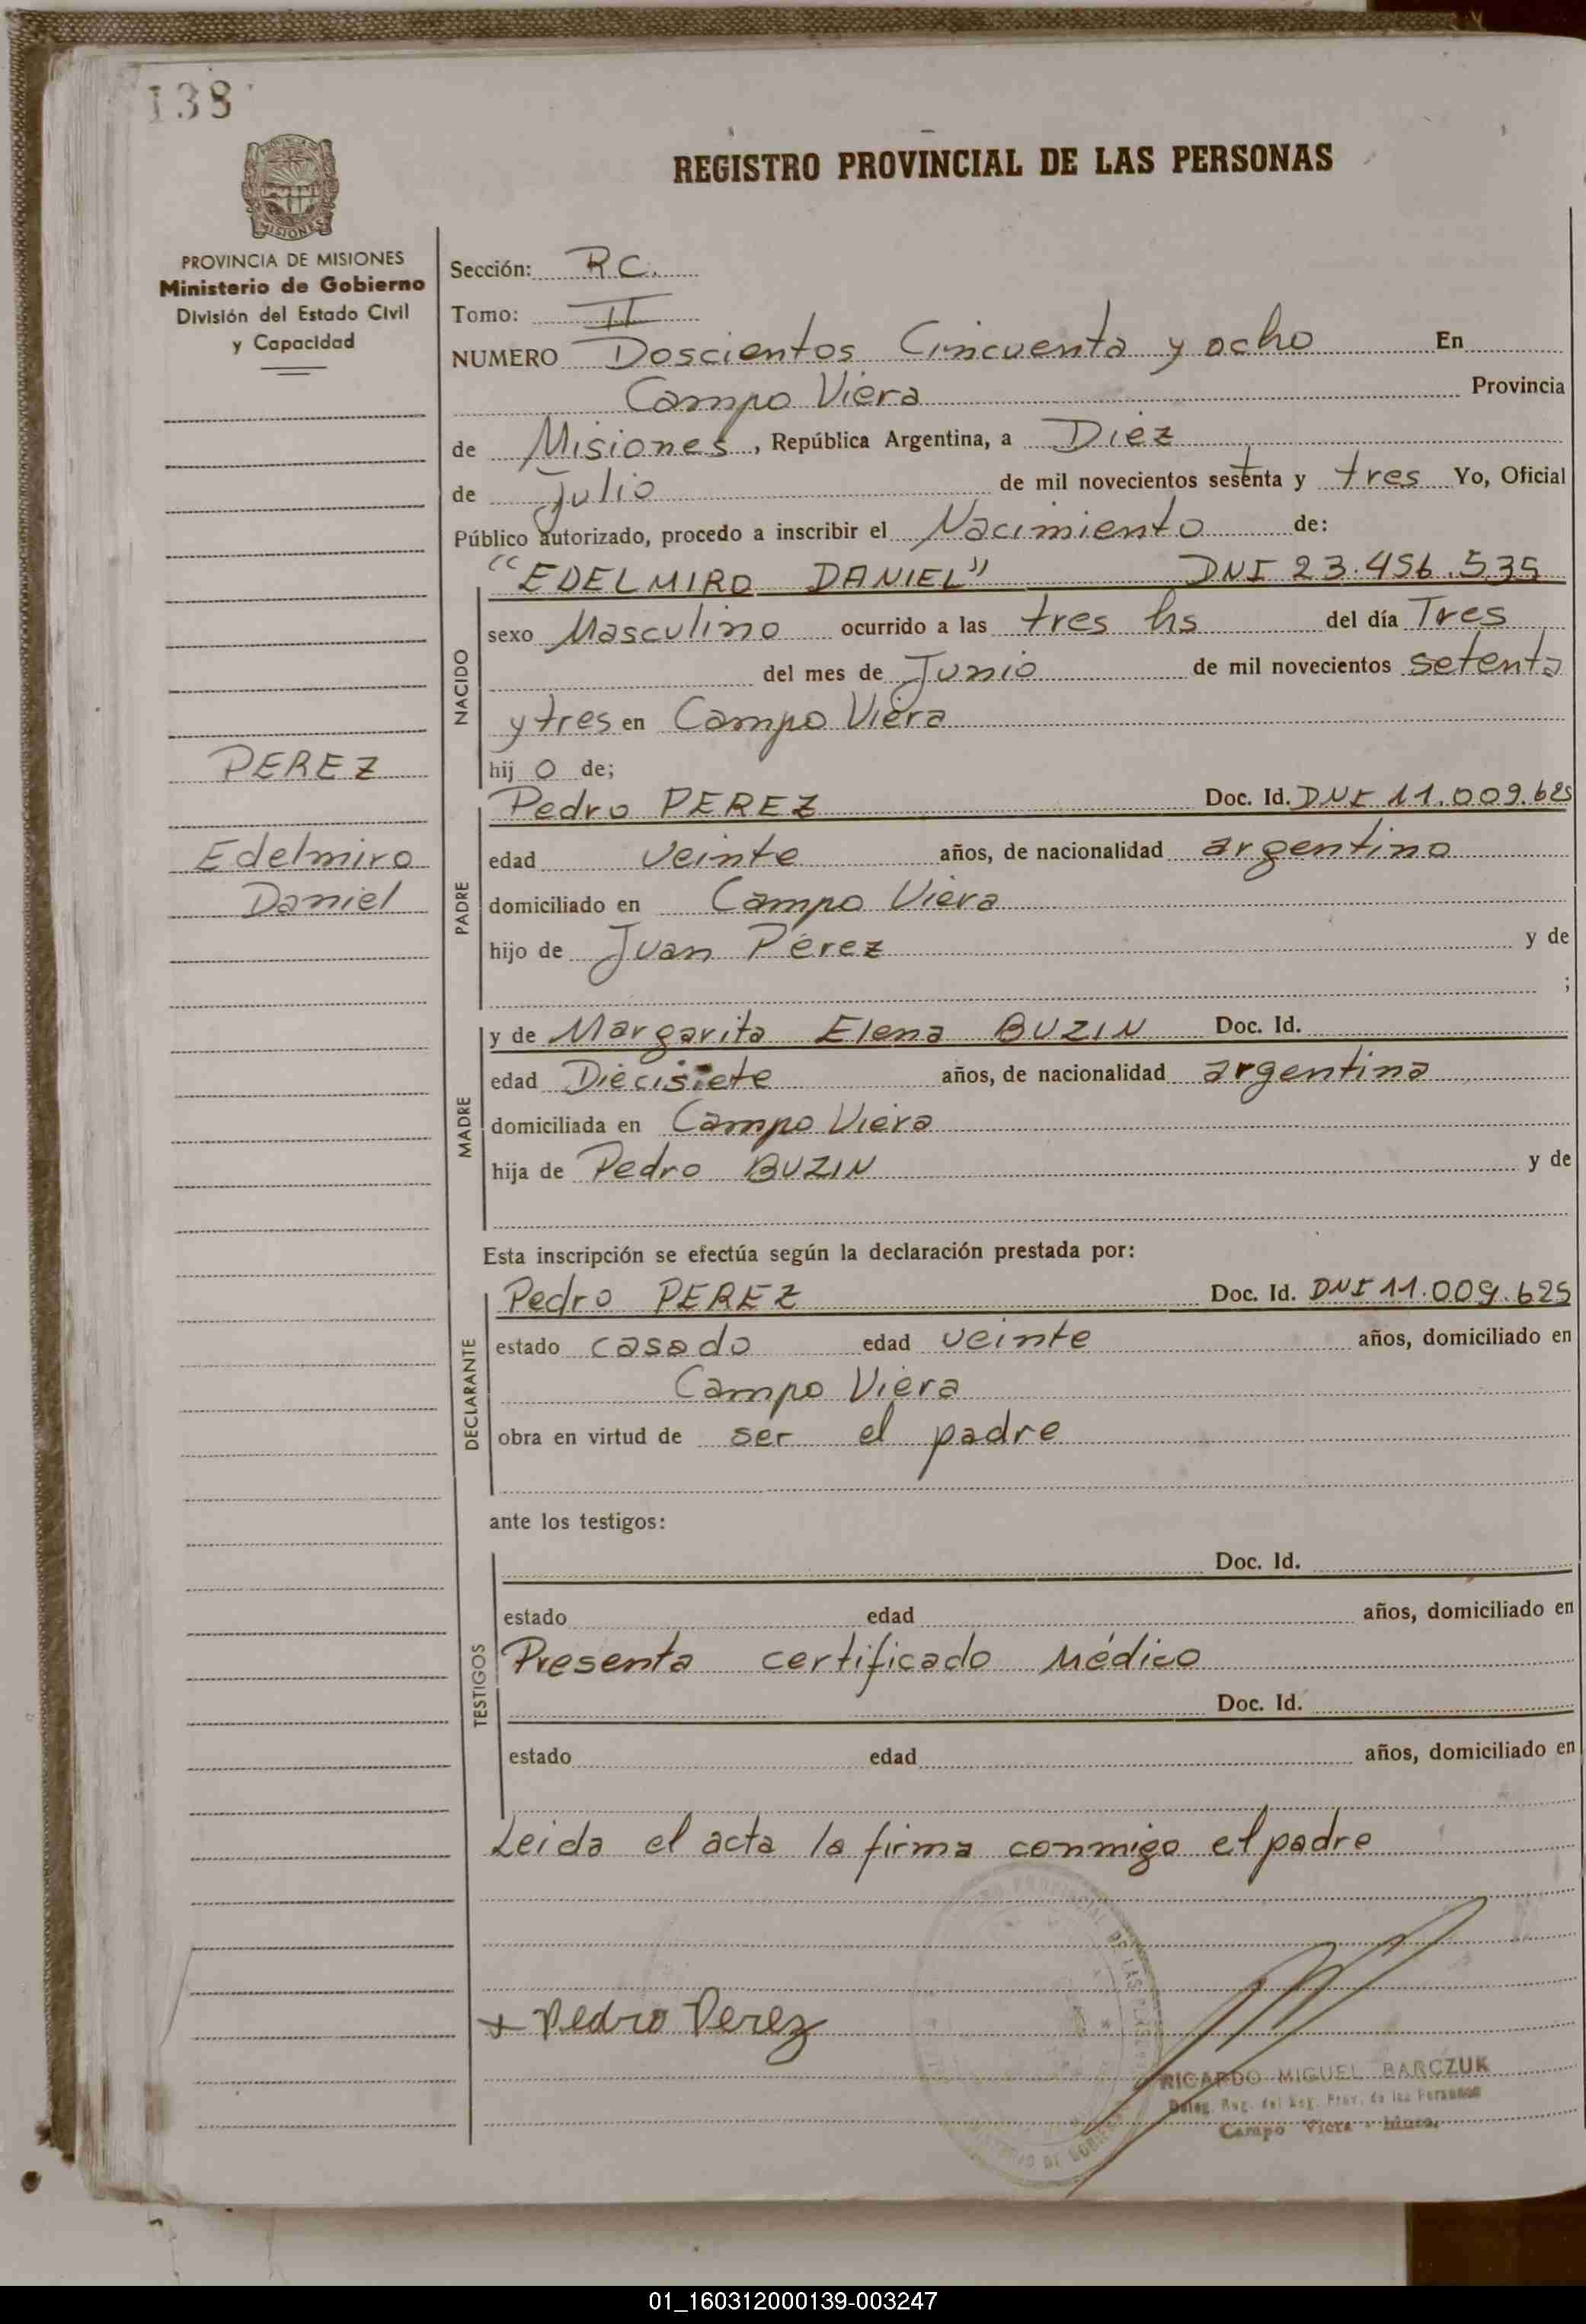 138
REGISTRO PROVINCIAL DE LAS PERSONAS
MISIONES
PROVINCIA DE MISIONES
Ministerio de Gobierno
División del Estado Civil
y Capacidad
PEREZ
Edelmiro
Daniel
Sección: R C.
Tomo: II
NUMERO Doscientos Cincuenta y ocho En
Campo Viera Provincia
de Misiones, República Argentina, a Diez
de Julio de mil novecientos setenta y tres Yo, Oficial
Público autorizado, procedo a inscribir el Nacimiento de:
"EDELMIRO DANIEL" DNI 23.456.535
NACIDO
sexo Masculino ocurrido a las tres hs del día Tres
del mes de Junio de mil novecientos setenta
y tres en Campo Viera
hij o de;
PADRE
Pedro PEREZ Doc. Id. DNI 11.009.625
edad veinte años, de nacionalidad argentino
domiciliado en Campo Viera
hijo de Juan Perez y de
;
MADRE
y de Margarita Elena BUZIN Doc. Id.
edad Diecisiete años, de nacionalidad argentina
domiciliada en Campo Viera
hija de Pedro BUZIN y de
Esta inscripción se efectúa según la declaración prestada por:
DECLARANTE
Pedro PEREZ Doc. Id. DNI 11.009.625
estado casado edad veinte años, domiciliado en
Campo Viera
obra en virtud de ser el padre
ante los testigos:
TESTIGOS
Doc. Id.
estado edad años, domiciliado en
Presenta certificado Médico
Doc. Id.
estado edad años, domiciliado en
Leida el acta la firma conmigo el padre
+ Pedro Perez
RICARDO MIGUEL BARCZUK
Reg. del Reg. Prov. de las Personas
Campo Viera
01_160312000139-003247